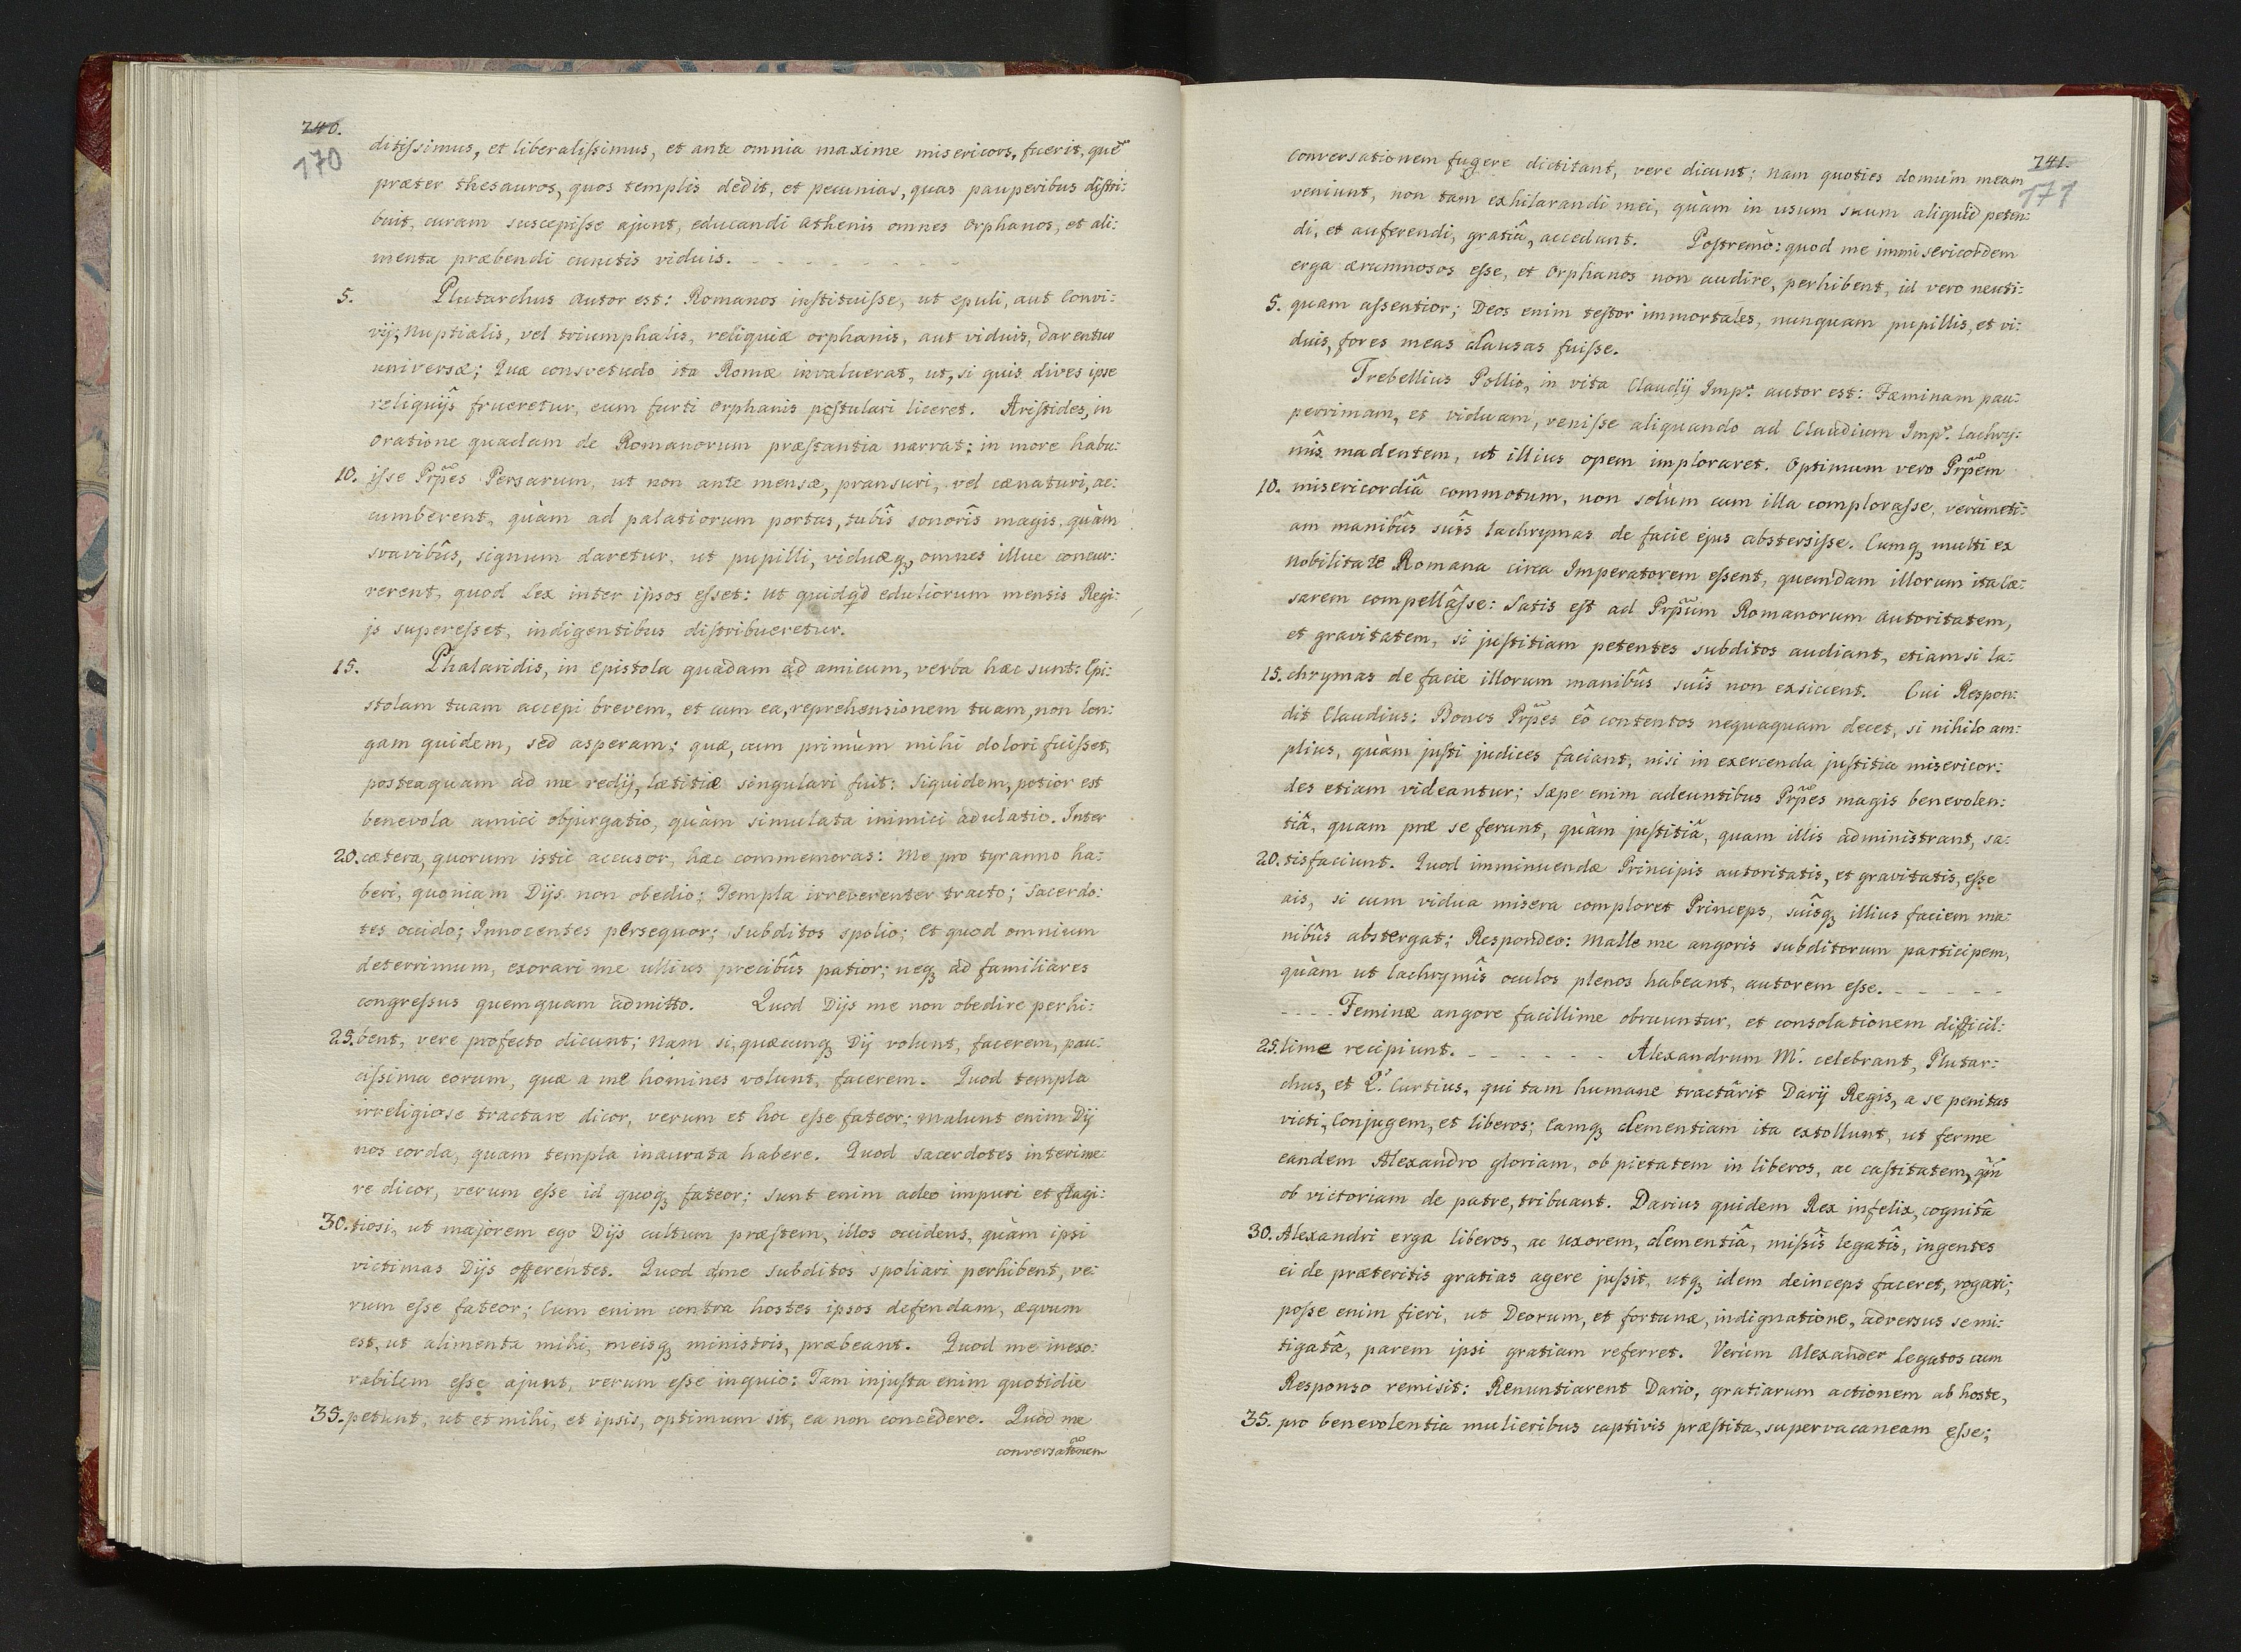 740.
170
ditissimus, et liberalissimus, et ante omnia maxime misericors, fuerit, quẽ
præter thesauros, quos templis dedit, et pecunias, quas pauperibus distri:
buit, curam suscepisse ajunt, educandi Athenis omnes Orphanos, et ali:
menta præbendi cunctis viduis. - - - - - - -
5. Plutarchus autor est: Romanos instituisse, ut epuli, aut Convi:
vij, Nuptialis, vel triumphalis, reliquiæ orphanis, aut viduis, darentur
universæ; Quæ consvetudo ita Romæ invaluerat, ut, si quis dives ipse
reliquijs frueretur, eum furti Orphanis postulari liceret. Aristides, in
Oratione quadam de Romanorum præstantia narrat: in more habu:
10. isse Prp̃es Persarum, ut non ante mensæ, pransuri, vel cænaturi, ac:
cumberent, quàm ad palatiorum portas, tubîs sonorîs magis, quàm
svavibûs, signum daretur, ut pupilli, viduæq, omnes illuc concur:
rerent, quod Lex inter ipsos esset: ut quidq̃d eduliorum mensis Regi:
js superesset, indigentibus distribueretur.
15. Phalaridis, in Epistola quadam ad amicum, verba hæc sunt: Epi:
stolam tuam accepi brevem, et cum ea, reprehensionem tuam, non lon:
gam quidem, sed asperam; quæ, cum primùm mihi dolori fuisset,
posteaquam ad me redij, lætitiæ singulari fuit: Siquidem, potior est
benevola amici objurgatio, quàm simulata inimici adulatio. Inter
20. cætera, quorum istic accusor, hæc commemoras: Me pro tyranno ha:
beri, quoniam Dijs non obedio; Templa irreverenter tracto; Sacerdo:
tes occido; Innocentes persequor; Subditos spolio; Et quod omnium
deterrimum, exorari me ullius precibûs patior; neq, ad familiares
congressus quemquam admitto. Quod Dijs me non obedire perhi:
25. bent, vere profecto dicunt; Nam si, quæcunq, Dij volunt, facerem, pau:
cissima eorum, quæ a me homines volunt, facerem. Quod templa
irreligiose tractare dicor, verum et hoc esse fateor; malunt enim Dij
nos corda, quam templa inaurata habere. Quod sacerdotes interime:
re dicor, verum esse id quoq, fateor; sunt enim adeo impuri et flagi:
30. tiosi, ut majorem ego Dijs cultum præstem, illos occidens, quàm ipsi
victimas Dijs offerentes. Quod a me subditos spoliari perhibent, ve:
rum esse fateor; Cum enim contra hostes ipsos defendam, æqvum
est, ut alimenta mihi, meisq, ministris, præbeant. Quod me inexo:
rabilem esse ajunt, verum esse inquio: Tam injusta enim quotidie
35. petunt, ut et mihi, et ipsis, optimum sit, ea non concedere. Quod me
conversatõnem
741.
171
Conversationem fugere dictitant, vere dicunt; Nam quoties domum meam
veniunt, non tam exhilarandi mei, quàm in usum suum aliquid peten:
di, et auferendi, gratiâ, accedunt. Postremò: quod me immisericordem
erga ærumnosos esse, et Orphanos non audire, perhibent, id vero neuti:
5. quam assentior; Deos enim testor immortales, nunquam pupillis, et vi:
duis, fores meas clausas fuisse.
Trebellius Pollio, in vita Claudij Impr. autor est: Fæminam pau:
perrimam, et viduam, venisse aliquando ad Claudium Impr. lachry:
mîs madentem, ut illius opem imploraret. Optimum vero Prp̃em
10. misericordiâ commotum, non solùm cum illa complorasse, verùmeti:
am manibûs suîs lachrymas de facie ejus abstersisse. Cumq, multi ex
nobilitate Romana circa Imperatorem essent, quendam illorum ita Cæ:
sarem compellâsse: Satis est ad Prp̃um Romanorum autoritatem,
et gravitatem, si justitiam petentes subditos audiant, etiamsi la:
15. chrymas de facie illorum manibûs suîs non exsiccent. Cui Respon:
dit Claudius: Bonos Prp̃es eô contentos nequaquam decet, si nihilo am:
plius, quàm justi judices faciant, nisi in exercenda justitia misericor:
des etiam videantur; Sæpe enim adeuntibus Prp̃es magis benevolen:
tiâ, quam præ se ferunt, quàm justitiâ, quam illis administrant, sa:
20. tisfaciunt. Quod imminuendæ Principis autoritatis, et gravitatis, esse
ais, si cum vidua misera comploret Princeps, suîsq, illius faciem ma:
nibûs abstergat; Respondeo: Malle me angoris subditorum participem,
quàm ut lachrymîs oculos plenos habeant, autorem esse. - - - - -
- - - - Feminæ angore facillime obruuntur, et consolationem difficil:
25. lime recipiunt. - - - - - - Alexandrum M. celebrant, Plutar:
chus, et Q. Curtius, qui tam humane tractârit Darij Regis, a se penitus
victi, Conjugem, et liberos; Eamq, clementiam ita extollunt, ut ferme
eandem Alexandro gloriam, ob pietatem in liberos, ac castitatem, q̃m
ob victoriam de patre, tribuant. Darius quidem Rex infelix, cognitâ
30. Alexandri erga liberos, ac uxorem, clementiâ, missîs legatîs, ingentes
ei de præteritis gratias agere jussit, utq, idem deinceps faceret, rogari;
posse enim fieri, ut Deorum, et fortunæ, indignatione, adversus se mi:
tigatâ, parem ipsi gratiam referret. Verùm Alexander Legatos cum
Responso remisit: Renuntiarent Dario, gratiarum actionem ab hoste,
35. pro benevolentia mulieribus captivis præstita, supervacaneam esse;